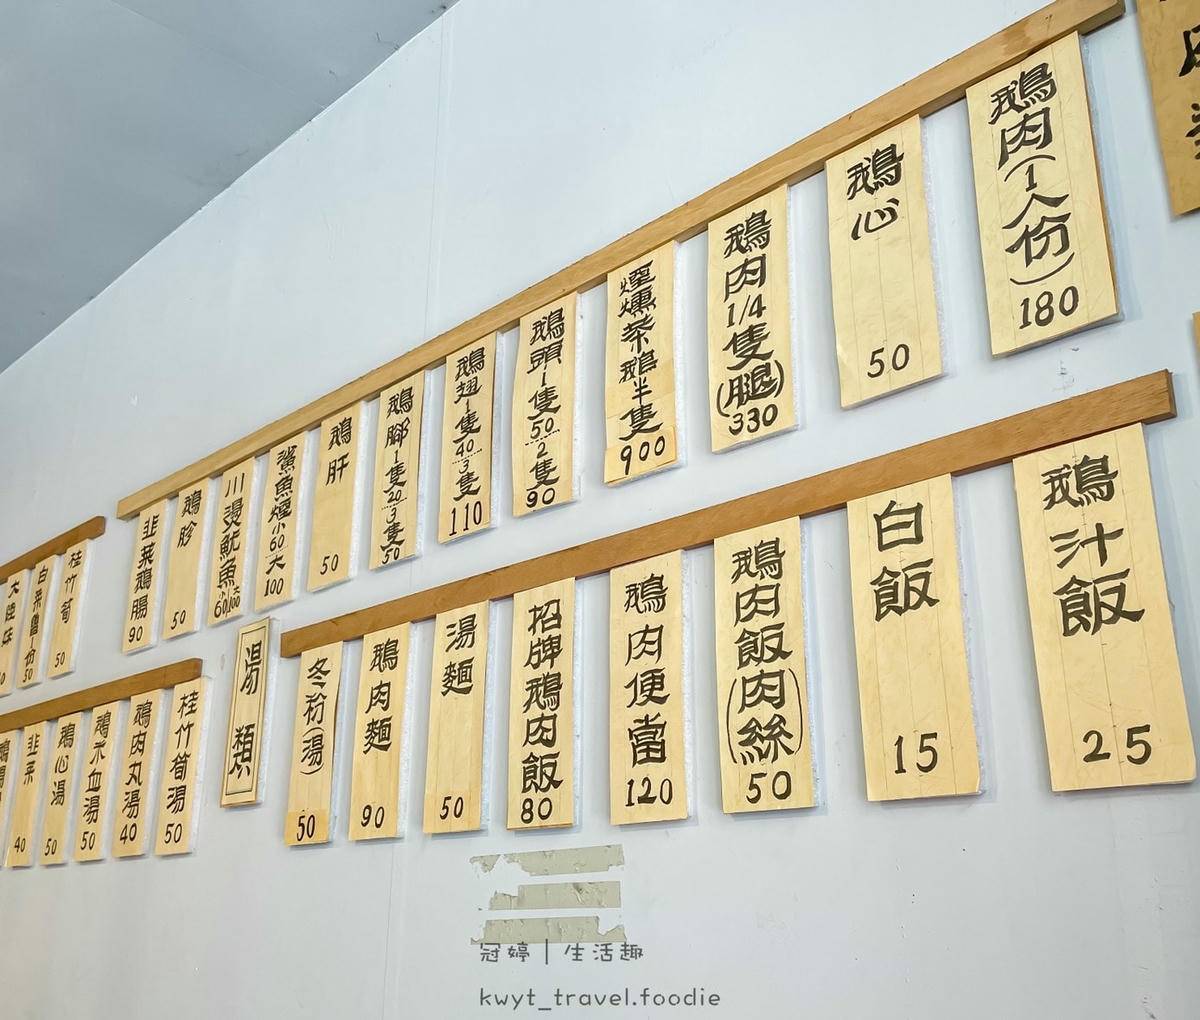 鵝肉(1人份)180
鵝心 50
鵝肉1/4隻(腿)330
煙燻茶鵝半隻900
鵝頭1隻50 2隻90
鵝翅1隻40 3隻110
鵝腳1隻20 3隻50
鵝肝 50
鯊魚煙小60大100
川燙魷魚小60大100
鵝胗 50
韭菜鵝腸90
桂竹筍50
鵝汁飯 25
白飯 15
鵝肉飯(肉絲)50
鵝肉便當120
招牌鵝肉飯80
湯麵 50
鵝肉麵 90
冬粉(湯)50
湯類
桂竹筍湯50
鵝肉丸湯40
鵝米血湯50
鵝心湯50
韭菜 40
冠婷｜生活趣
kwyt_travel.foodie